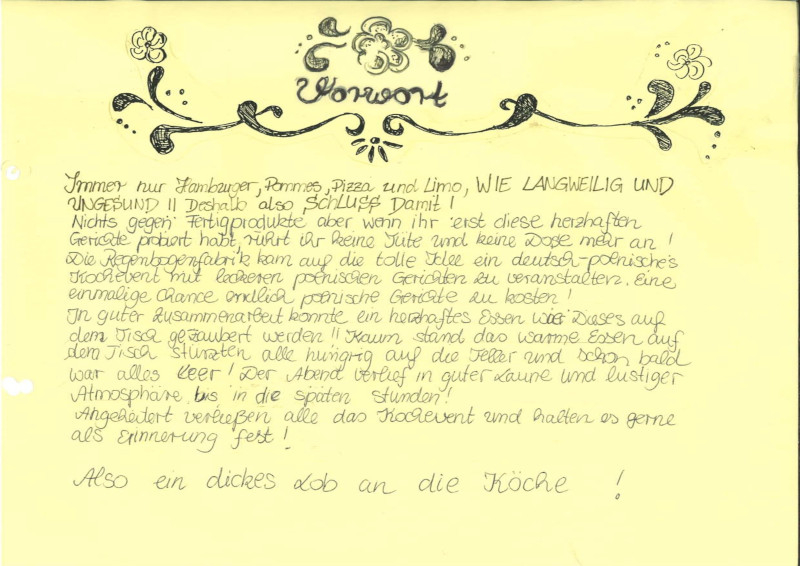 Vorwort
Immer nur Hamburger, Pommes, Pizza und Limo, WIE LANGWEILIG UND
UNGESUND !! Deshalb also SCHLUSS Damit !
Nichts gegen Fertigprodukte aber wenn ihr erst diese herzhaften
Gerichte probiert habt, rührt ihr keine Tüte und keine Dose mehr an !
Die Regenbogenfabrik kam auf die tolle Idee ein deutsch-polnisches
Kochevent mit leckeren polnischen Gerichten zu veranstalten. Eine
einmalige Chance endlich polnische Gerichte zu kosten !
In guter Zusammenarbeit konnte ein herzhaftes Essen wie Dieses auf
dem Tisch gezaubert werden !! Kaum stand das warme Essen auf
dem Tisch stürzten alle hungrig auf die Teller und schon bald
war alles leer ! Der Abend verlief in guter Laune und lustiger
Atmosphäre bis in die späten Stunden !
Angeheitert verließen alle das Kochevent und halten es gerne
als Erinnerung fest !
Also ein dickes Lob an die Köche !